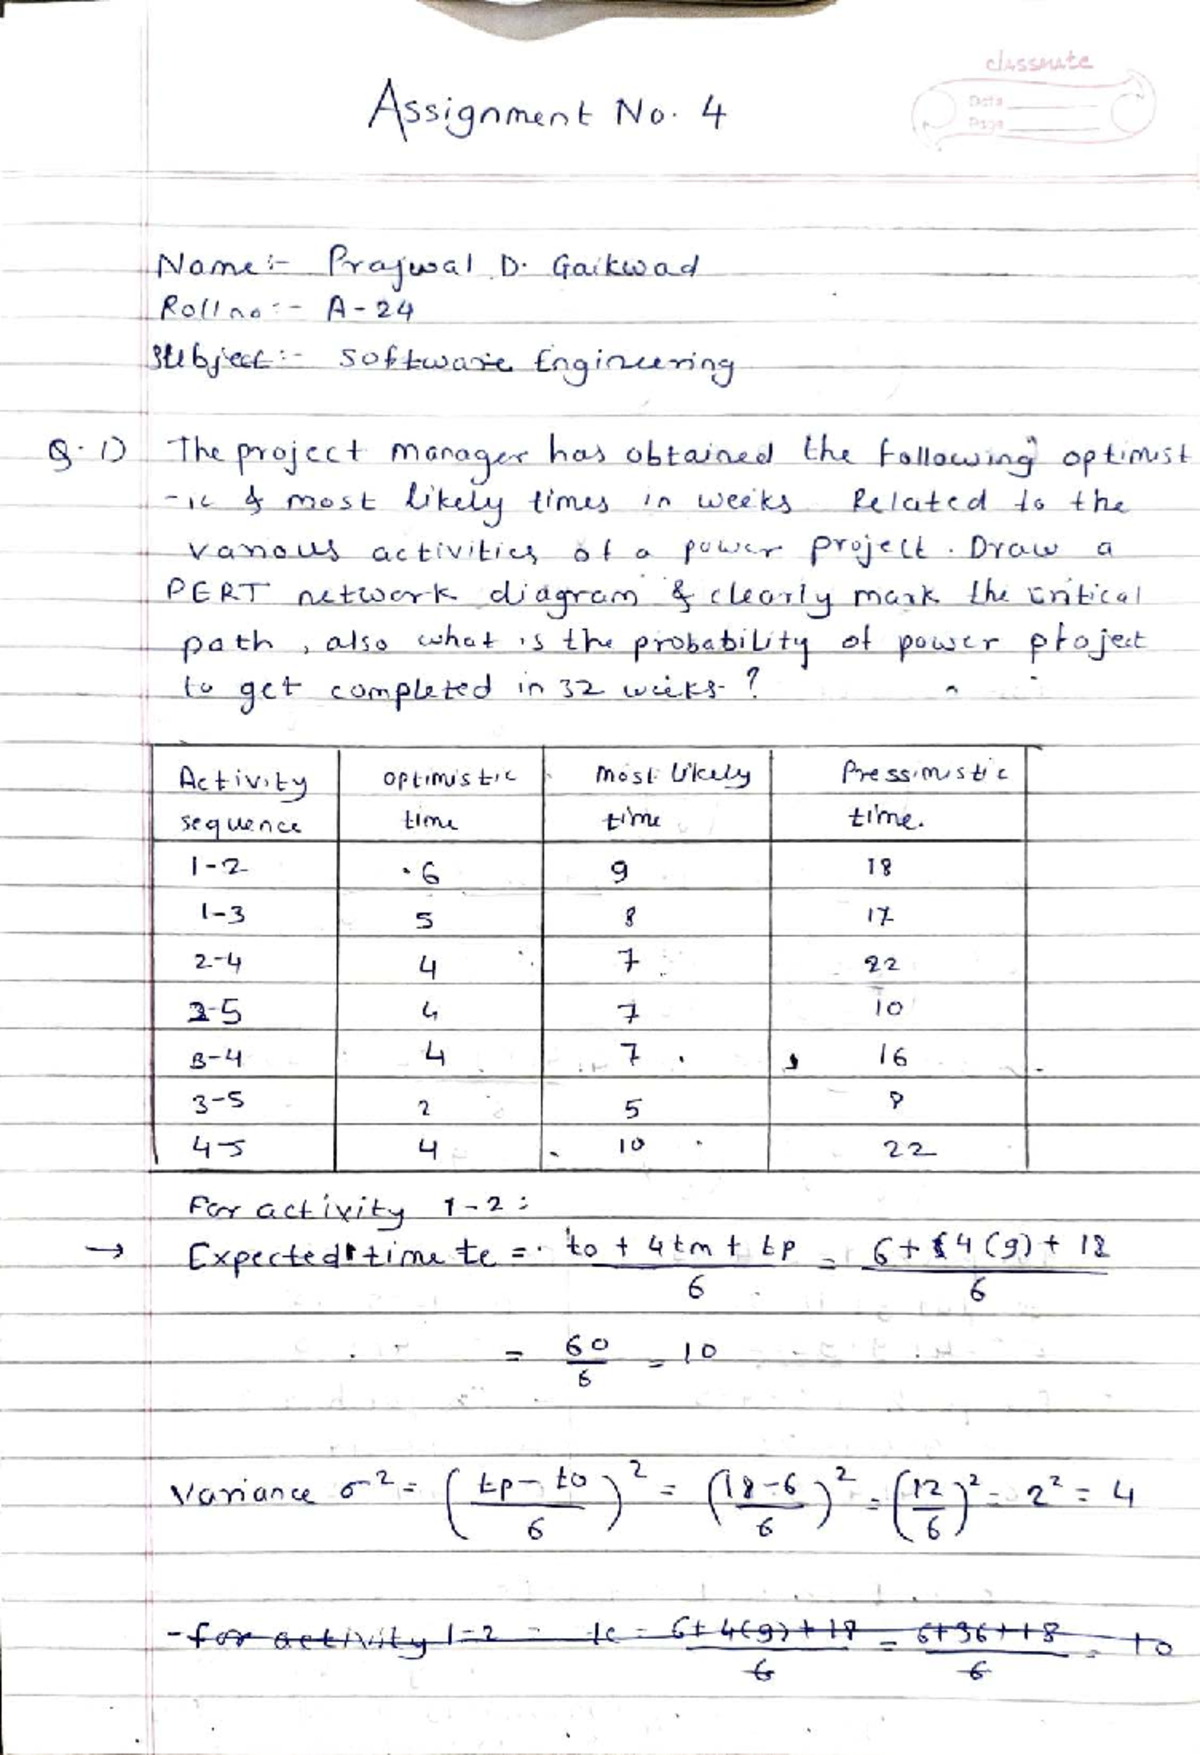 classmate
Date
Page
Assignment No. 4
Name:- Prajwal D. Gaikwad
Roll no:- A-24
Subject:- Software Engineering
Q.1) The project manager has obtained the following optimist
-ic & most likely times in weeks Related to the
various activities of a power project. Draw a
PERT network diagram & clearly mark the critical
path, also what is the probability of power project
to get completed in 32 weeks.?
Activity sequence | optimistic time | most likely time | Pressimistic time.
1-2 | 6 | 9 | 18
1-3 | 5 | 8 | 17
2-4 | 4 | 7 | 22
2-5 | 4 | 7 | 10
3-4 | 4 | 7 | 16
3-5 | 2 | 5 | 8
4-5 | 4 | 10 | 22
For activity 1-2:
→ Expected time te = to + 4tm + tp / 6 = 6 + 4(9) + 18 / 6
= 60/6 = 10
Variance σ² = (tp - to / 6)² = (18-6 / 6)² = (12/6)² = 2² = 4
-for activity 1-2 - te = 6+4(9)+18 / 6 = 6+36+18 / 6 = 10